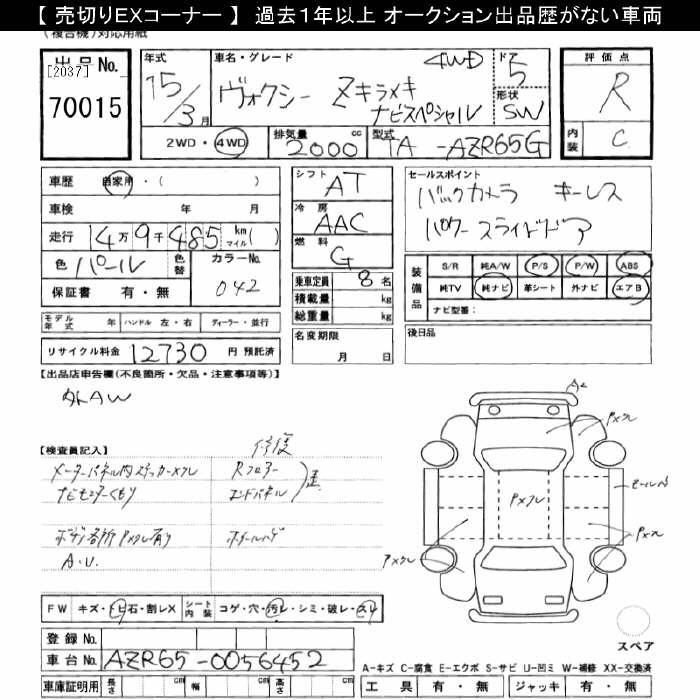 【 売切りEXコーナー 】 過去1年以上 オークション出品歴がない車両
(複合機)対応用紙
出品No.
[2037]
70015
年式 15/3月
車名・グレード
ヴォクシー Zキラメキ 4WD
ナビスペシャル
ドア 5
形状 SW
2WD・4WD
排気量 2000 cc
型式 TA-AZR65G
評価点
R
内装 C
車歴 自家用・( )
車検 年 月
走行 14万9千485 km マイル( )
色 パール 色替 カラーNo. 042
保証書 有・無
シフト AT
冷房 AAC
燃料 G
乗車定員 8名
積載量 kg
総重量 kg
名変期限 月 日
セールスポイント
バックカメラ キーレス
パワースライドドア
装備品
S/R 純A/W P/S P/W ABS
純TV 純ナビ 革シート 外ナビ エアB
ナビ型番:
後日品
モデル年式 年 ハンドル 左・右 ディーラー・並行
リサイクル料金 12730 円 預託済
【出品店申告欄(不良箇所・欠品・注意事項等)】
外AW
【検査員記入】
修復
メーターパネル内ステッカーメクレ Rフロアー
ナビモニターくもり エンドパネル
ボデー各所Pメクレ有り ホイールハゲ
A・U.
A2
Pメクレ
モールハゲ
Pメクレ
Pメクレ
FW キズ・トビ石・割レX シート内装 コゲ・穴・汚レ・シミ・破レ・スレ
登録No.
車台No. AZR65-0056452
スペア
A-キズ C-腐食 E-エクボ S-サビ U-凹ミ W-補修 XX-交換済
車庫証明用 長さ cm 幅 cm 高さ cm 工具 有・無 ジャッキ 有・無